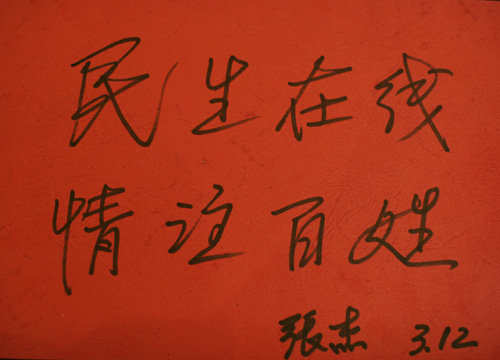 民生在线
情注百姓
张杰 3.12